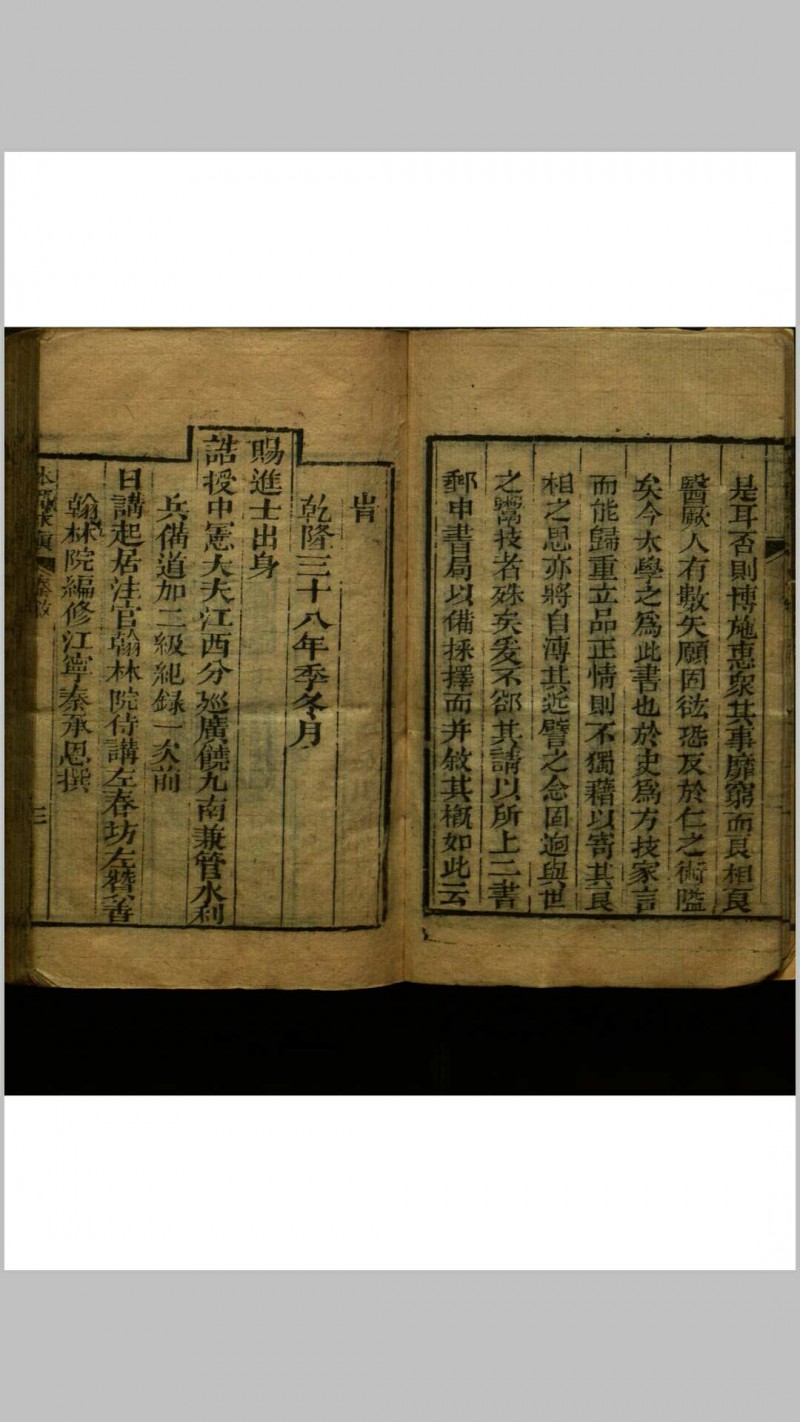 是耳否則博施惠衆其事靡窮而良相良
醫厥人有數矢願固彶恐反於仁之術隘
矣今太學之爲此書也於史爲方技家言
而能歸重立品正情則不獨藉以寄其良
相之思亦將自溥其近譬之念固迥與世
之鬻技者殊矣爰不卻其請以所上二書
郵申書局以備採擇而并敘其槪如此云
旹
乾隆三十八年季冬月
賜進士出身
誥授中憲大夫江西分廵廣饒九南兼管水利
兵備道加二級紀錄一次前
日講起居注官翰林院侍講左春坊左贊善
翰林院編修江寧秦承恩撰
本草求真 秦敘 三